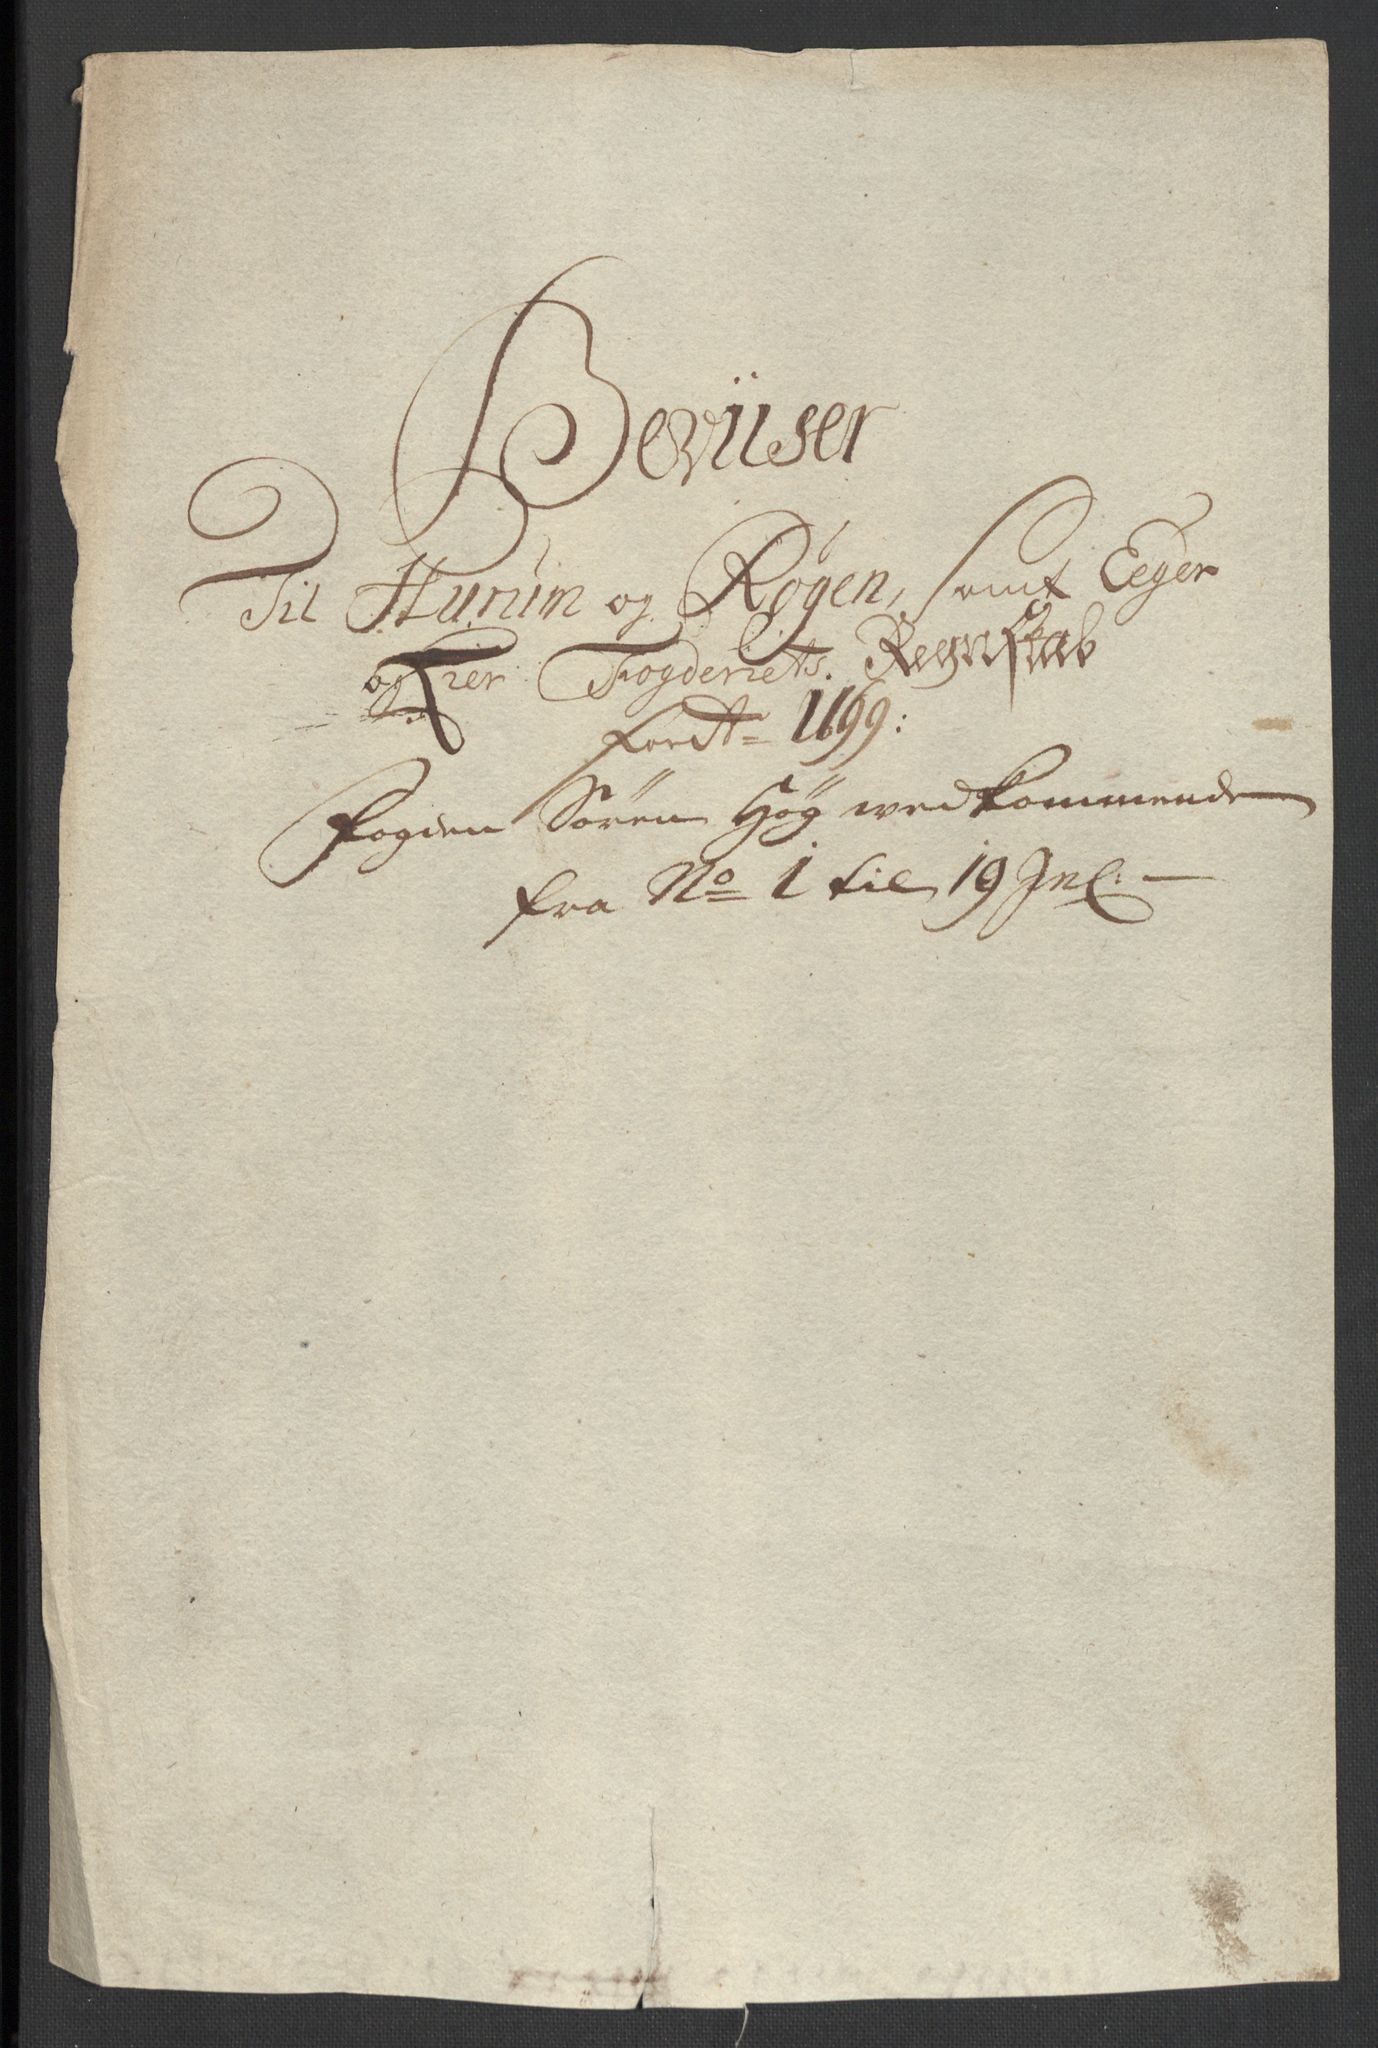 Beviiser
Til Hurum og Røgen, samt Eeger
og Lier Fogderiets Regnskab
for A= 1699:
Fogden Sören Høg wedkommende
fra No 1 til 19 Incl: